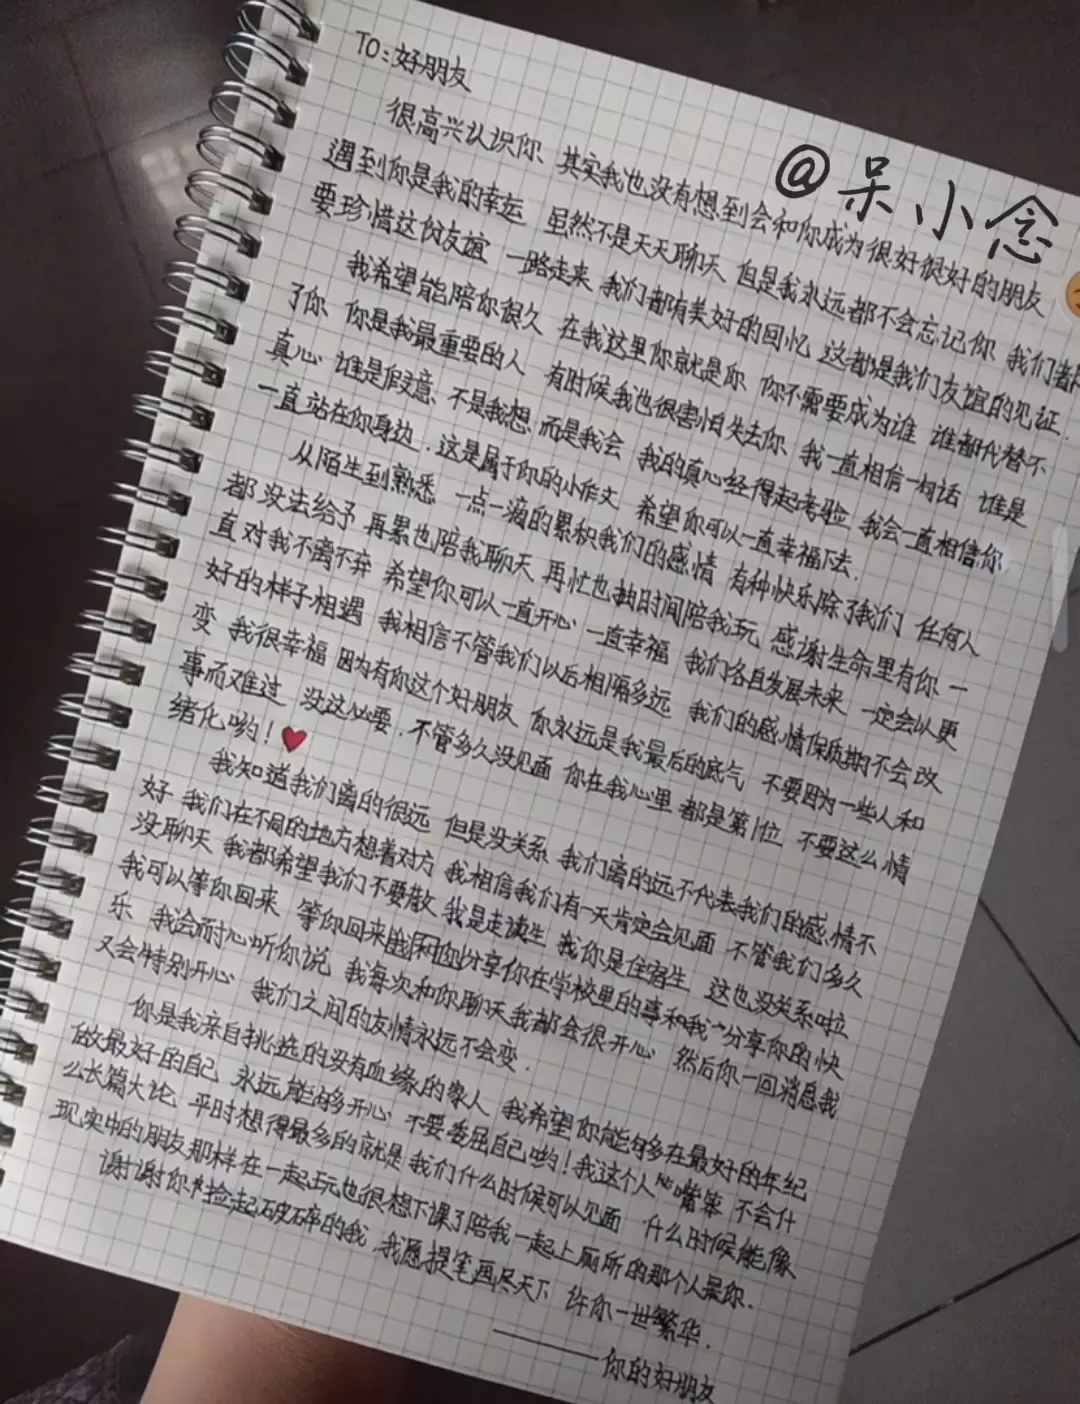 TO:好朋友
@呆小念
很高兴认识你、其实我也没有想到会和你成为很好很好的朋友
遇到你是我的幸运 虽然不是天天聊天 但是我永远都不会忘记你 我们都
要珍惜这份友谊 一路走来 我们都有美好的回忆 这都是我们友谊的见证.
我希望能陪你很久 在我这里你就是你 你不需要成为谁 谁都代替不
了你 你是我最重要的人 有时候我也很害怕失去你 我一直相信一句话 谁是
真心 谁是假意、不是我想 而是我会 我的真心经得起考验 我会一直相信你
一直站在你身边.这是属于你的小作文 希望你可以一直幸福下去.
从陌生到熟悉 一点一滴的累积我们的感情 有种快乐除了我们 任何人
都没法给予 再累也陪我聊天 再忙也抽时间陪我玩 感谢生命里有你 一
直对我不离不弃 希望你可以一直开心 一直幸福 我们各自发展未来 一定会以更
好的样子相遇 我相信不管我们以后相隔多远 我们的感情保质期不会改
变 我很幸福 因为有你这个好朋友 你永远是我最后的底气 不要因为一些人和
事而难过 没这必要.不管多久没见面 你在我心里 都是第1位 不要这么情
绪化哟!
我知道我们离的很远 但是没关系 我们离的远不代表我们的感情不
好 我们在不同的地方想着对方 我相信我们有一天肯定会见面 不管我们多久
没聊天 我都希望我们不要散 我是走读生 我你是住宿生 这也没关系啦
我可以等你回来 等你回来 分享你在学校里的事和我 分享你的快
乐 我会耐心听你说 我每次和你聊天我都会很开心 然后你一回消息我
又会特别开心 我们之间的友情永远不会变.
你是我亲自挑选的没有血缘的家人 我希望你能够多在最好的年纪
做最好的自己 永远能够开心 不要委屈自己哟!我这个人 嘴笨 不会什
么长篇大论 平时想得最多的就是 我们什么时候可以见面 什么时候能像
现实中的朋友那样在一起玩也很想下课了陪我一起上厕所的那个人是你.
谢谢你 捡起破碎的我.我愿提笔画尽天下 许你一世繁华.
———你的好朋友